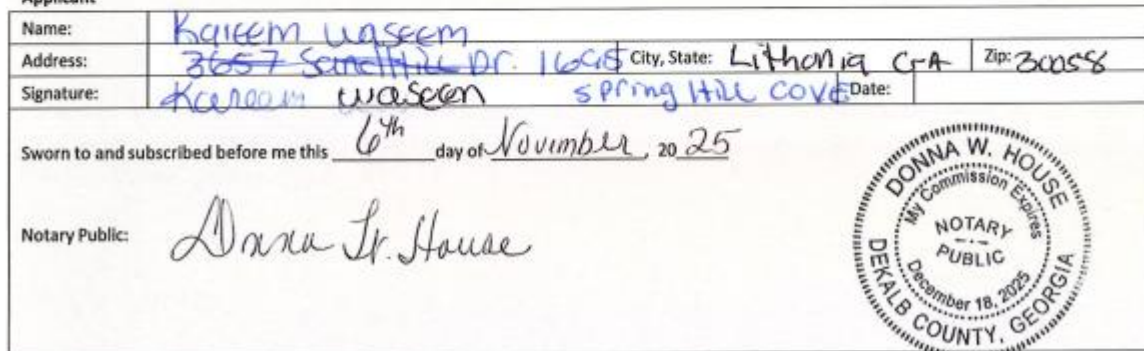 Applicant
Name: Kareem Waseem
Address: 3657 Sandhill Dr. 1695 City, State: Lithonia GA Zip: 30058
Signature: Kareem waseem spring Hill cove Date:
Sworn to and subscribed before me this 6th day of November, 2025
Notary Public: Donna W. House
DONNA W. HOUSE
My Commission Expires
NOTARY
PUBLIC
December 18, 2025
DEKALB COUNTY, GEORGIA